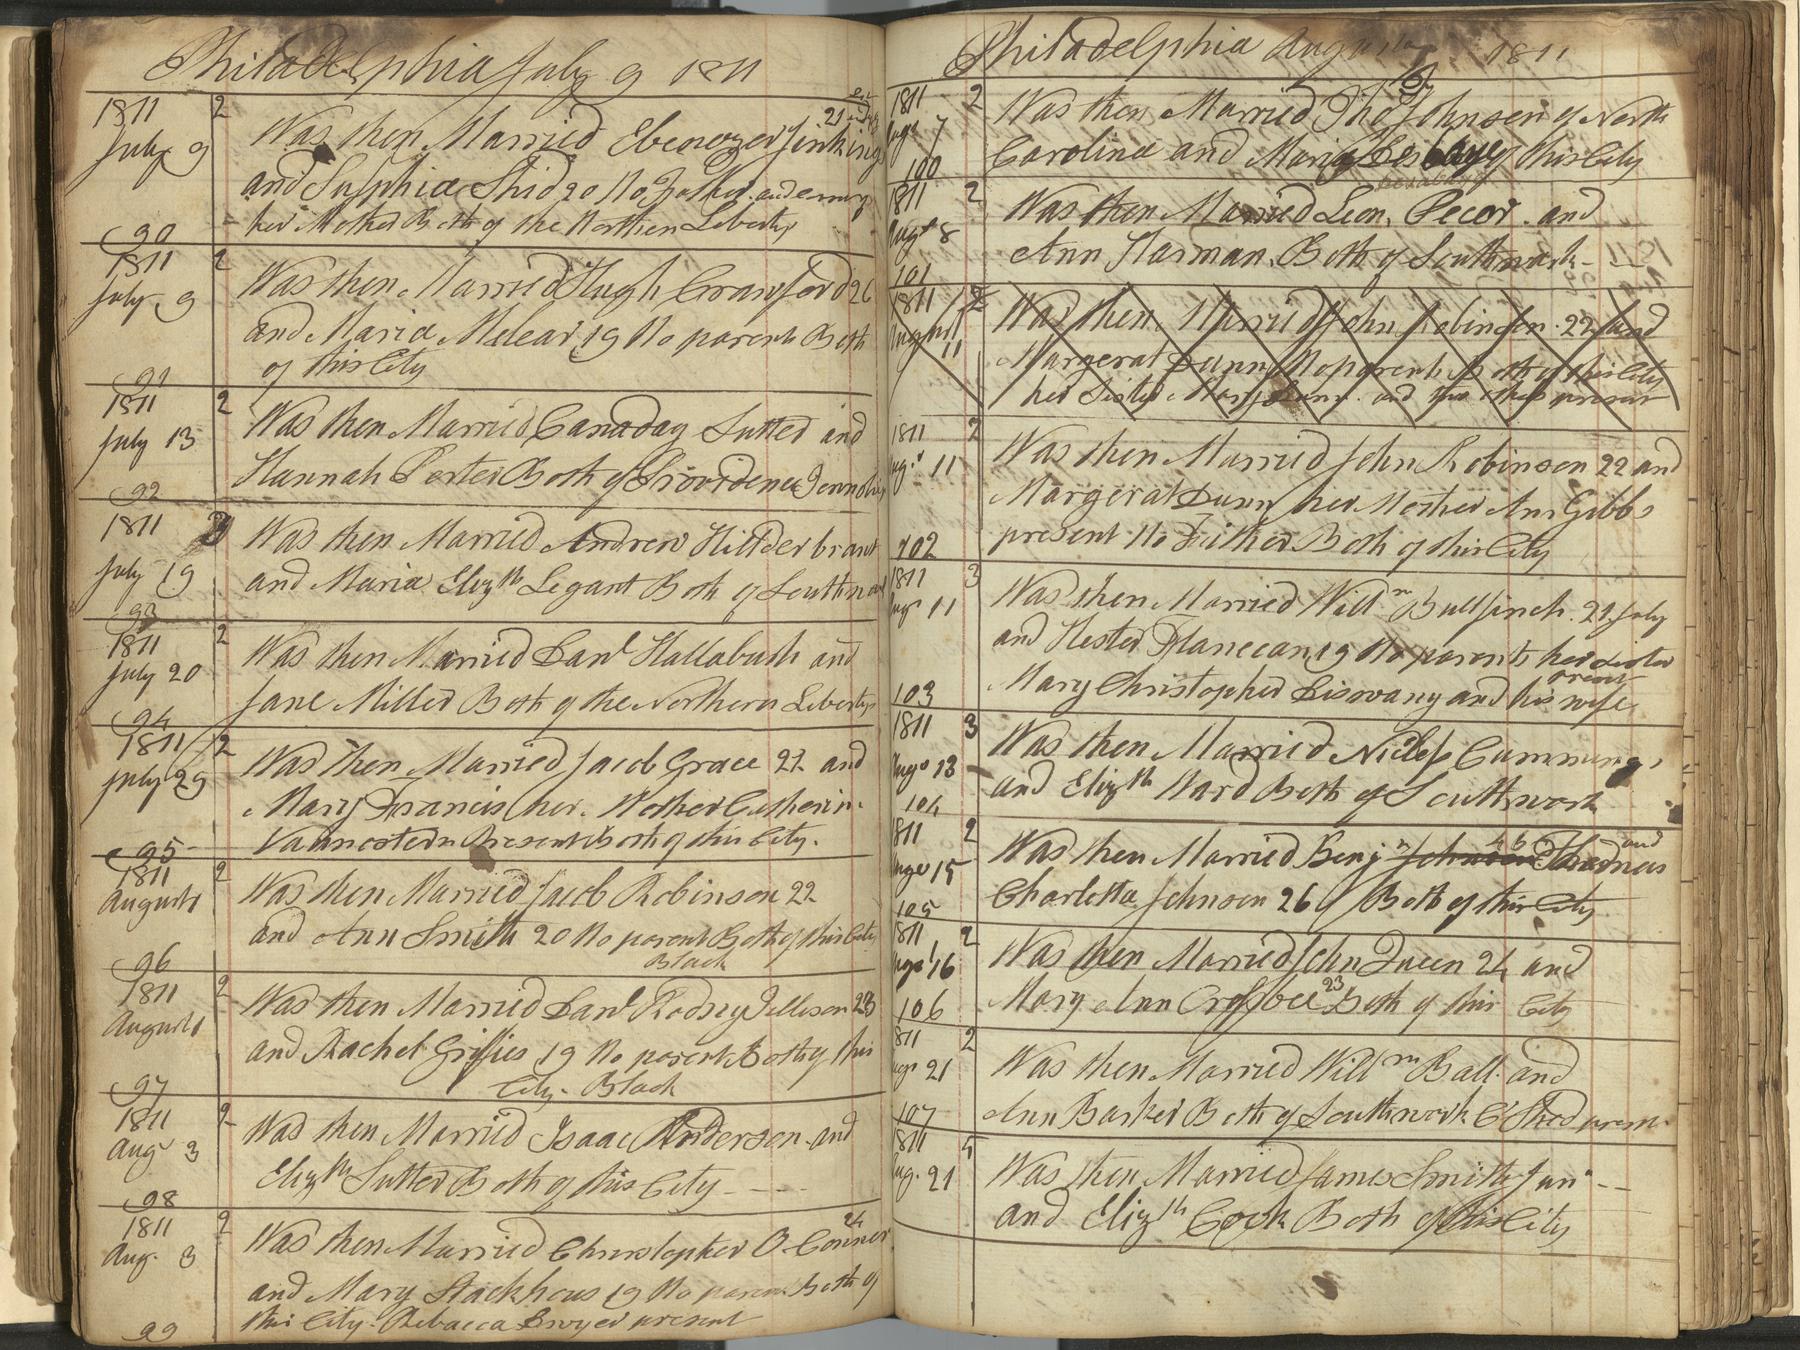 Philadelphia July 9 1811
1811 2
July 9
Was then Married Ebenezer Jinkings 21
and Sulphia Shid 20 No Father and
her Mother Both of the Northen Liberty
90
1811 2
July 9
Was then Married Hugh Crawford 26
and Maria Melear 19 No parent Both
of this City
91
1811 2
July 13
Was then Married Canaday Sutter and
Hannah Porter Both of Providence
92
1811
July 19
Was then Married Andrew Hillderbrant
and Maria Elizth Legant Both of Southwark
93
1811 2
July 20
Was then Married Danl Hallabush and
Jane Miller Both of the Northern Liberty
94
1811 2
July 29
Was then Married Jacob Grace 22 and
Mary Francis her Mother Catherin
Present Both of this City.
95
1811 2
August 1
Was then Married Jacob Robinson 22
and Ann Smith 20 No parent Both of this City
Black
96
1811 2
August 1
Was then Married Danl Rodney 23
and Rachel Griffies 19 No parent Both of this
City. Black
97
1811 2
Aug 3
Was then Married Isaac Anderson and
Elizth Sutter Both of this City
98
1811 2
Aug. 3
Was then Married Christopher O Conner 24
and Mary Stackhous 19 No parent Both of
this City. Rebacca present
99
Philadelphia August 1811
1811 2
Augt 7
Was then Married Thos Johnson of North
Carolina and Maria of this City
100
1811 2
Augt 8
Was then Married Leon Pecor and
Ann Harman Both of Southwark
101
1811 2
August 11
Was then Married John Robinson 22 and
Margerat Dunn No parents Both of this City
her Sister Mary Dunn and two others present
1811 2
Augt 11
Was then Married John Robinson 22 and
Margerat Dunn her Mother Ann Gibbs
present No Father Both of this City
102
1811 3
Augt 11
Was then Married Willm Bullfinch 21 July
and Hester Flanecan 19 No parents her sister
present
Mary Christopher and his wife
103
1811 3
Augt 13
Was then Married Nicles Cummings
and Elizth Ward Both of Southwork
104
1811 2
Augt 15
Was then Married Benjn Johnson Thomas and
Charlotta Johnson 26 Both of this City
105
1811 2
Augt 16
Was then Married John Queen 24 and
Mary Ann Crossbee 23 Both of this City
106
1811 2
Augt 21
Was then Married Willm Ball and
Ann Barker Both of Southwork present
107
1811 5
Aug. 21
Was then Married James Smith Junr
and Elizth Cook Both of this City